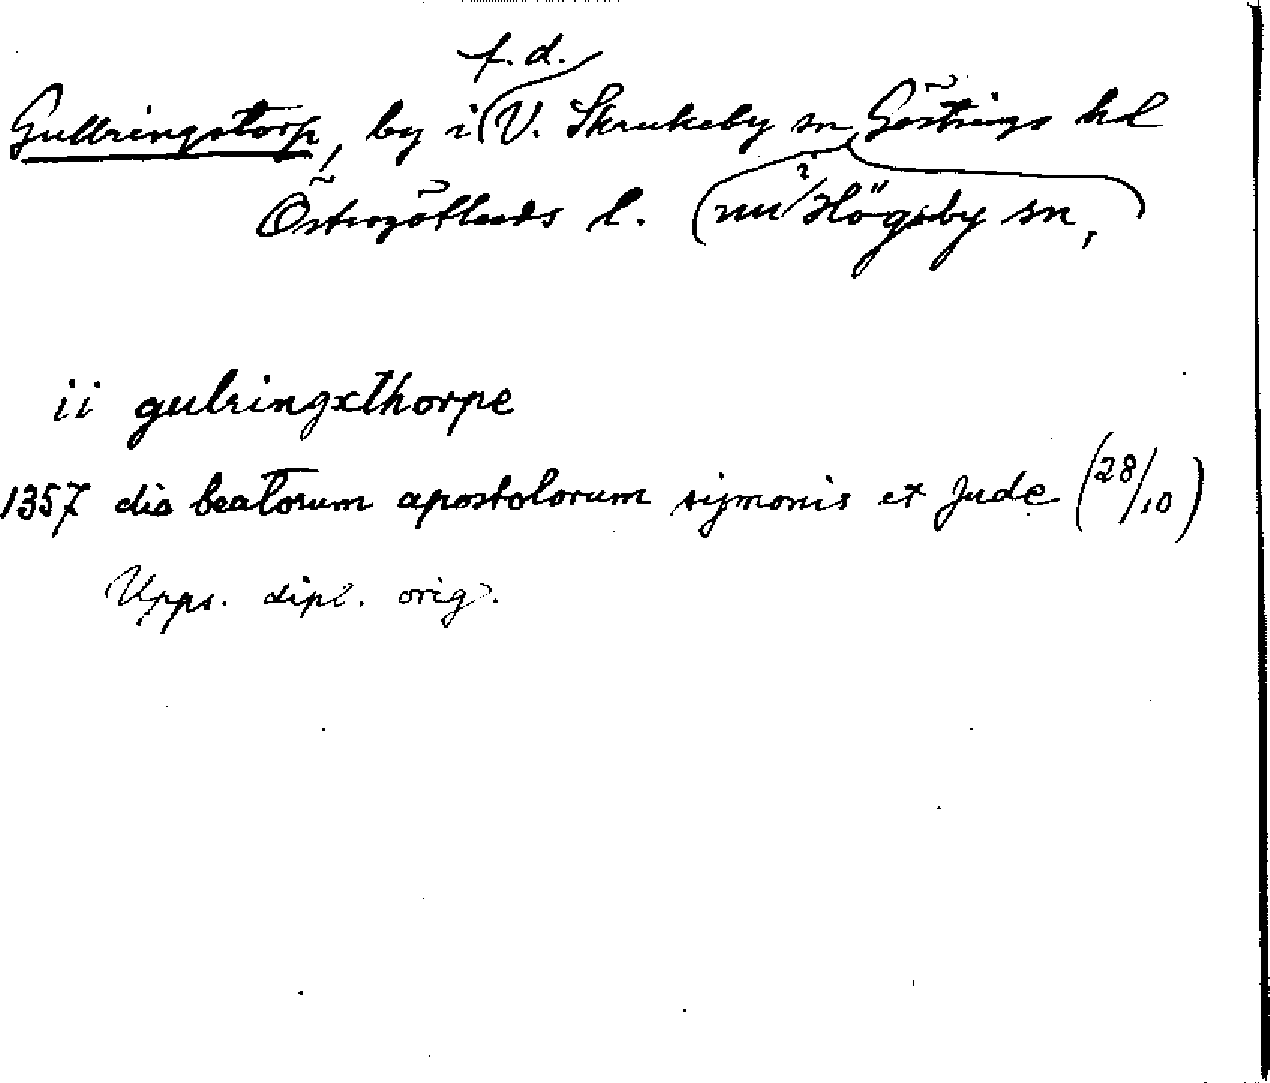 f.d.
Gullringstorp, by i V. Skrukeby sn Göstrings hd
Östergötlands l. (nu i Högsby sn,)
ii gulringxthorpe
1357 die beatorum apostolorum symonis et Jude (28/10)
Upps. dipl. orig.